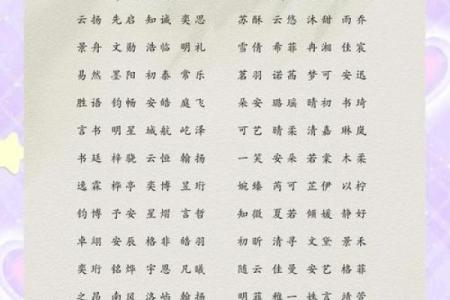 云扬 先启 知诚 奕思 苏酥 云悠 沐甜 雨乔
景舟 文勋 浩临 明礼 雪倩 希菲 冉湘 佳宸
易然 墨阳 初秦 常乐 茗羽 诺茜 梦可 安迅
胜语 钧畅 安皓 庭飞 朵安 璐瑶 晴初 书琦
言书 明星 城航 屹泽 可艺 晴柔 清嘉 琳岚
书廷 梓骁 云恒 翰扬 一笑 安朵 若棠 木柔
逸霖 桦亭 奕博 昱珩 婉臻 芮可 芷伊 以柠
钧博 予安 星熠 言哲 知微 夏若 倾媛 静好
卓翊 安辰 格非 皓羽 初昕 清寻 文黛 景禾
奕珩 铭烨 宇恩 凡曦 随云 佳曼 安艺 语蓓